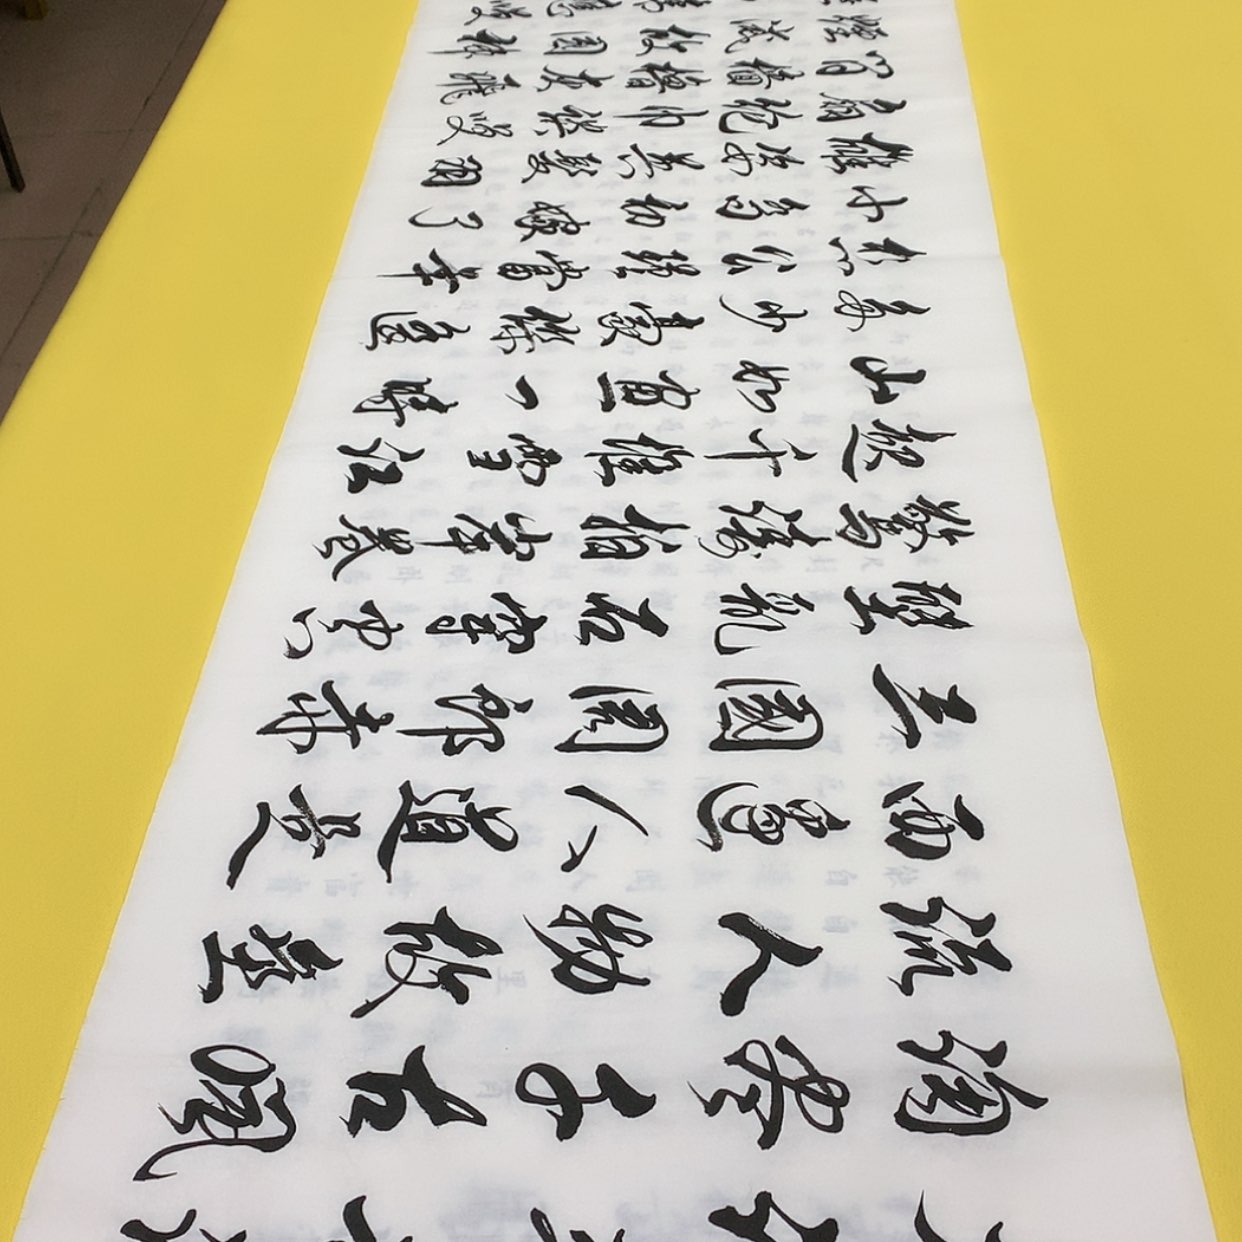 淘尽千古风
流人物故垒
西边人道是
三國周郎赤
壁乱石穿空
惊涛拍岸卷
起千堆雪江
山如画一时
多少豪杰遥
想公瑾当年
小乔初嫁了
雄姿英发羽
扇纶巾谈笑
间樯橹灰飞
烟灭故国神